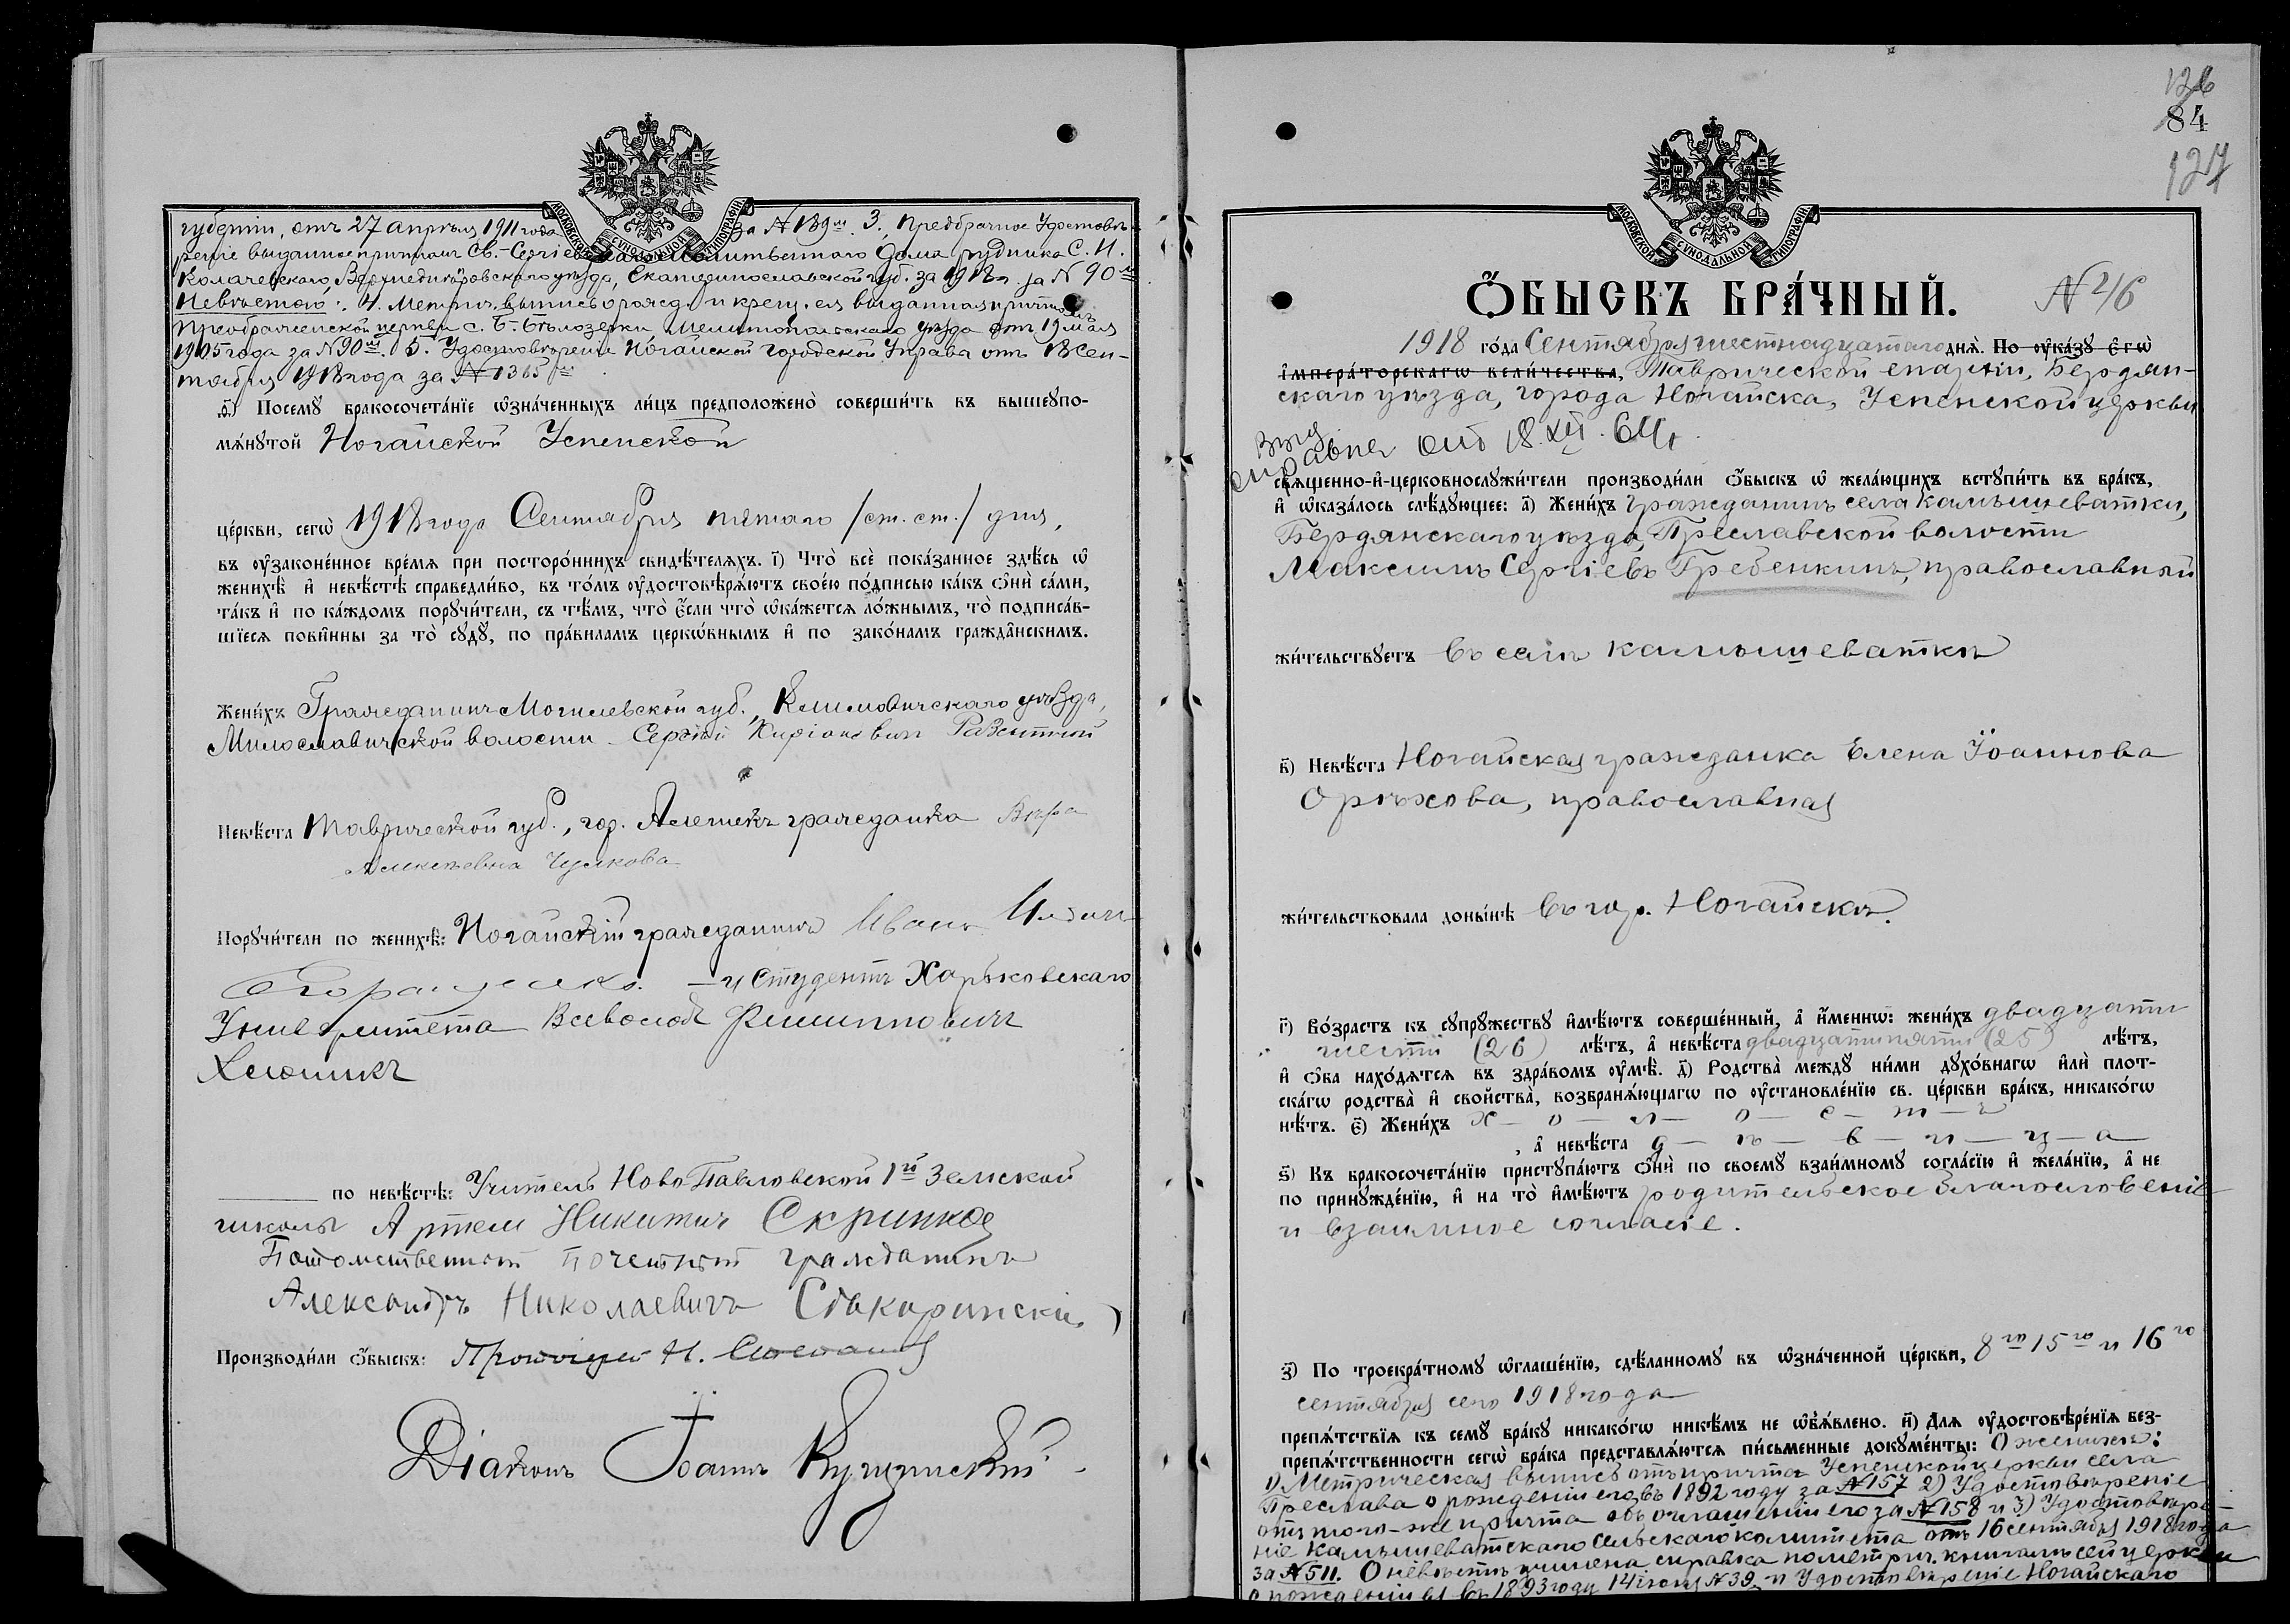 губерніи, отъ 27 апрѣля 1911 года за № 189мъ. 3. Предбрачное Удостовѣ-
реніе выданное причтомъ Св.-Сергіевскаго молитвеннаго Дома рудника С. И.
Колачевскаго, Верхнеднѣпровскаго уѣзда, Екатеринославской губ. за 1918 г. за № 90мъ
Невѣстою: 4. Метрич. выпись о рожд. и крещ. ея выданная причтомъ
Преображенской церкви с. Б.-Бѣлозерки Мелитопольскаго уѣзда отъ 19 мая
1905 года за № 90мъ. 5. Удостовѣреніе Ногайской Городской Управы отъ 18 Сен-
тября 1918 года за № 1365мъ
ѳ҃) Посемꙋ бракосочета́нїе ѡ҆зна́ченныхъ ли́цъ предположено̀ соверши́ть въ вышеꙋпо-
мѧ́нꙋтой Ногайской Успенской
це́ркви, сегѡ̀ 1918 года Сентября пятаго /ст. ст./ дня,
въ ᲂу҆зако́ненное вре́мѧ при посторо́ннихъ свидѣ́телѧхъ. і҃) Что̀ всѐ пока́занное здѣ́сь ѡ҆
женихѣ̀ и҆ невѣ́стѣ справедли́во, въ то́мъ ᲂу҆достовѣрѧ́ютъ свое́ю по́дписью ка́къ ѻ҆нѝ са́ми,
та́къ и҆ по ка́ждомъ порꙋчи́тели, съ тѣ́мъ, что̀ є҆́сли что̀ ѡ҆ка́жетсѧ ло́жнымъ, то̀ подписа́в-
шїесѧ пови́нны за то̀ сꙋдꙋ̀, по пра́виламъ церкѡ́внымъ и҆ по зако́намъ гражда́нскимъ.
Жени́хъ Гражданинъ Могилевской губ., Климовичскаго уѣзда,
Милославичской волости Сергѣй
Невѣ́ста Таврической губ., гор. Алешекъ гражданка Вѣра
Алексѣевна Чулкова
Порꙋчи́тели по женихѣ̀: Ногайскій гражданинъ Иванъ
и Студентъ Харьковскаго
Университета Всеволодъ Филипповичъ
по невѣ́стѣ: Учитель Ново Павловской 1й Земской
школы Артем Никитич Скрипка
Потомственный почетный гражданинъ
Александръ Николаевичъ
Производи́ли ѻ҆́быскъ: Протоіерей Н.
Діаконъ Іоаннъ
126
84
127
Ѻ҆́БЫСКЪ БРА́ЧНЫЙ. № 46
1918 го́да Сентября шестнадцатаго днѧ̀. По ᲂу҆ка́зꙋ є҆гѡ̀
і҆мпера́торскагѡ вели́чества, Таврической епархіи, Бердян-
скаго уѣзда, города Ногайска, Успенской церкви
справка от 18.XII.64 г.
свѧще́нно-и҆-церковнослꙋжи́тели производи́ли ѻ҆́быскъ ѡ҆ жела́ющихъ встꙋпи́ть въ бра́къ,
и҆ ѡ҆каза́лось слѣ́дꙋющее: а҃) Жени́хъ гражданинъ села Камышеватки,
Бердянскаго уѣзда, Преславской волости
Максимъ Сергіевъ Гребенкинъ, православный
жи́тельствꙋетъ въ селѣ Камышеваткѣ
в҃) Невѣ́ста Ногайская гражданка Елена Іоаннова
Орѣхова, православная
жи́тельствовала доны́нѣ въ гор. Ногайскѣ.
г҃) Во́зрастъ къ сꙋпрꙋ́жествꙋ и҆мѣ́ютъ соверше́нный, а҆ и҆́меннѡ: жени́хъ двадцати
шести (26) лѣ́тъ, а҆ невѣ́ста двадцати пяти (25) лѣ́тъ,
и҆ ѻ҆́ба нахо́дѧтсѧ въ здра́вомъ ᲂу҆мѣ̀. д҃) Родства̀ междꙋ ни́ми дꙋхо́внагѡ и҆лѝ плот-
ска́гѡ родства̀ и҆ свойства̀, возбранѧ́ющагѡ по ᲂу҆становле́нїю св. це́ркви бра́къ, никако́гѡ
нѣ́тъ. є҃) Жени́хъ х — о — л — о — с — т — ъ
, а҆ невѣ́ста д — ѣ — в — и — ц — а
ѕ҃) Къ бракосочета́нїю пристꙋпа́ютъ ѻ҆нѝ по своемꙋ̀ взаи́мномꙋ согла́сїю и҆ жела́нїю, а҆ не
по принꙋжде́нїю, и҆ на то̀ и҆мѣ́ютъ родительское благословеніе
и взаимное согласіе.
з҃) По троекра́тномꙋ ѡ҆глаше́нїю, сдѣ́ланномꙋ въ ѡ҆зна́ченной це́ркви, 8го 15го и 16го
сентября сего 1918 года
препѧ́тствїѧ къ семꙋ̀ бра́кꙋ никако́гѡ никѣ́мъ не ѡ҆б̾ѧ́влено. и҃) Длѧ ᲂу҆достовѣре́нїѧ без-
препѧ́тственности сегѡ̀ бра́ка представлѧ́ются пи́сьменные докꙋме́нты: О женихѣ:
1) Метрическая выпись отъ причта Успенской церкви села
Преслава о рожденіи его въ 1892 году за № 157 2) Удостовѣреніе
отъ того-же причта объ оглашеніи его за № 158 и 3) Удостовѣре-
ніе Камышеватскаго сельскаго комитета отъ 16 сентября 1918 года
за № 511. О невѣстѣ учинена справка по метрич. книгамъ сей церкви
о рожденіи ея въ 1893 году 14 іюня № 39 и Удостовѣреніе Ногайскаго